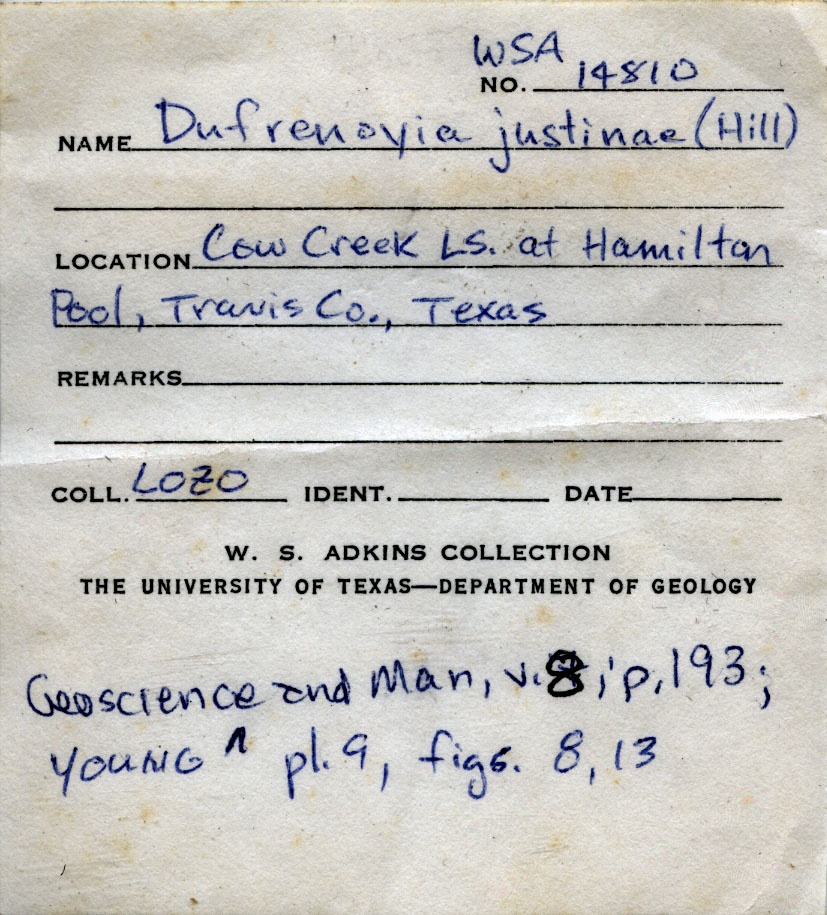 WSA
NO. 14810
NAME Dufrenoyia justinae (Hill)
LOCATION Cow Creek LS. at Hamilton
Pool, Travis Co., Texas
REMARKS
COLL. LOZO IDENT. DATE
W. S. ADKINS COLLECTION
THE UNIVERSITY OF TEXAS—DEPARTMENT OF GEOLOGY
Geoscience and Man, v. 8, p. 193;
YOUNG ^ pl. 9, figs. 8, 13